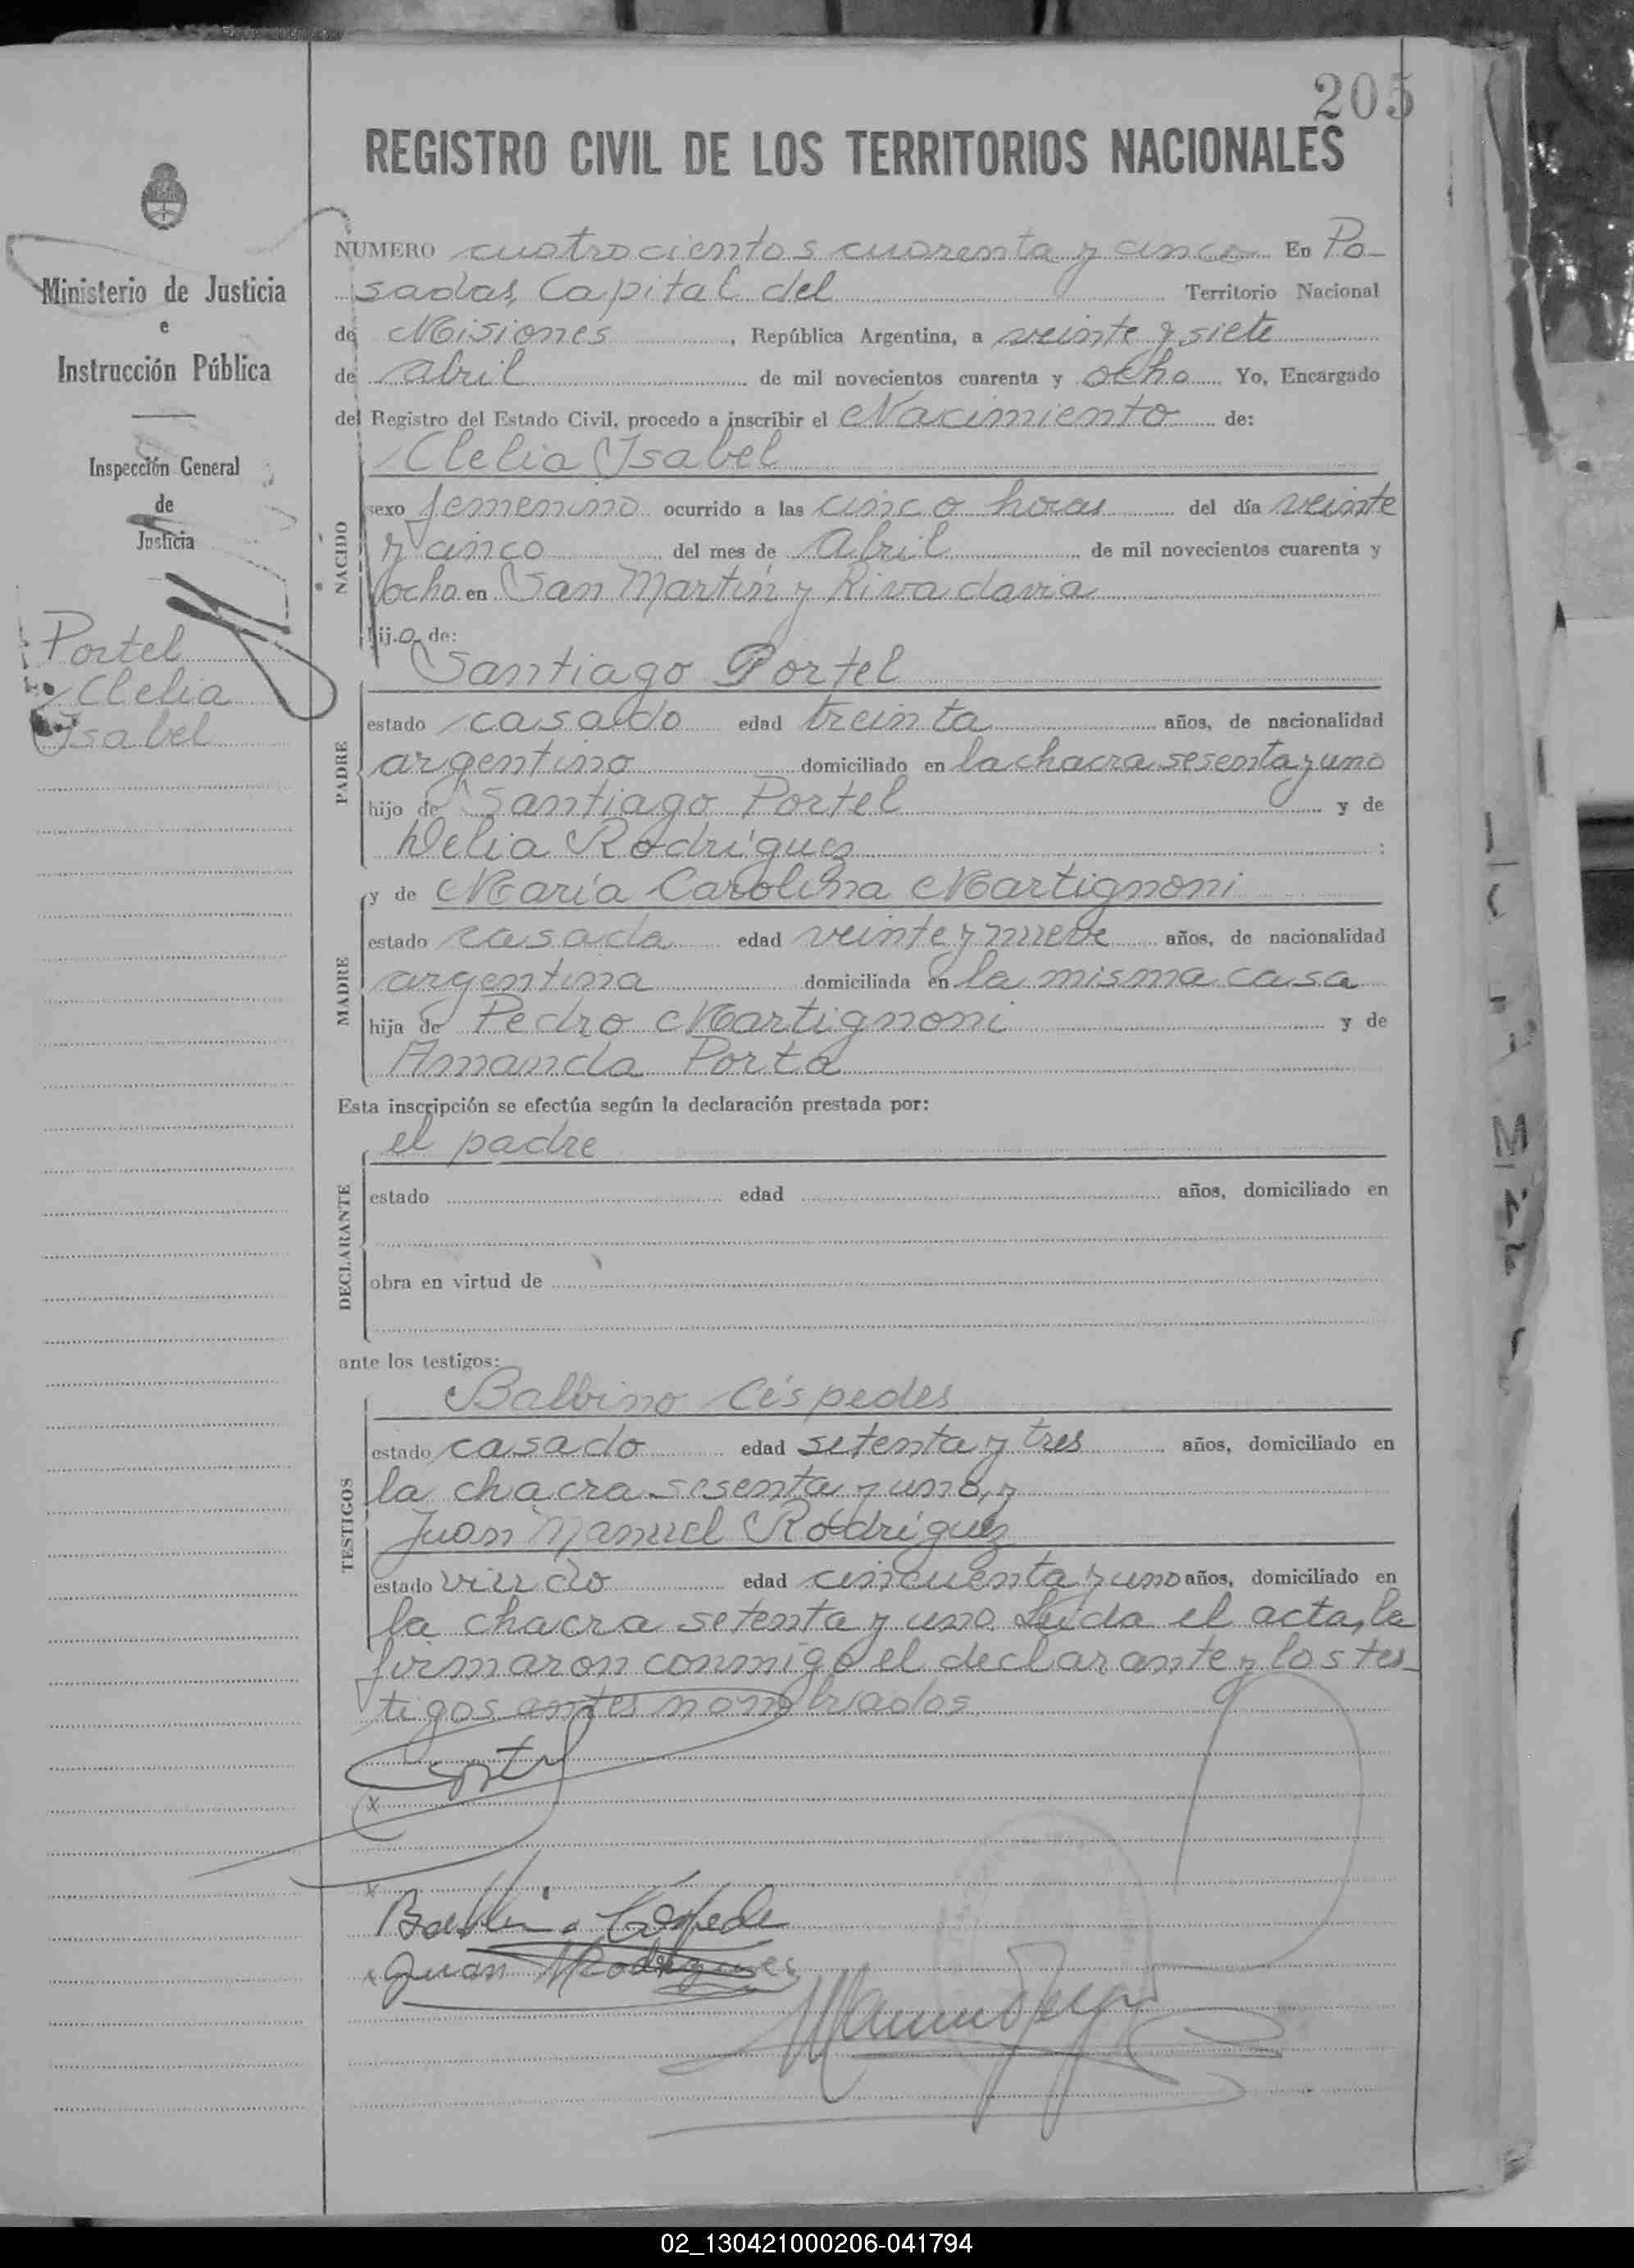 205
REGISTRO CIVIL DE LOS TERRITORIOS NACIONALES
Ministerio de Justicia
e
Instrucción Pública
Inspección General
de
Justicia
Portel
Clelia
Isabel
NUMERO cuatrocientos cuarenta y cinco En Po-
sadas, Capital del Territorio Nacional
de Misiones, República Argentina, a veinte y siete
de abril de mil novecientos cuarenta y ocho Yo, Encargado
del Registro del Estado Civil, procedo a inscribir el Nacimiento de:
Clelia Isabel
NACIDO
sexo femenino ocurrido a las cinco horas del día veinte
y cinco del mes de Abril de mil novecientos cuarenta y
ocho en San Martín y Rivadavia
hij.a de:
Santiago Portel
PADRE
estado casado edad treinta años, de nacionalidad
argentino domiciliado en la chacra sesenta y uno
hijo de Santiago Portel y de
Delia Rodríguez :
y de María Carolina Martignoni
MADRE
estado casada edad veinte y nueve años, de nacionalidad
argentina domiciliada en la misma casa
hija de Pedro Martignoni y de
Amanda Porta
Esta inscripción se efectúa según la declaración prestada por:
el padre
DECLARANTE
estado edad años, domiciliado en
obra en virtud de
ante los testigos:
Balbino Céspedes
TESTIGOS
estado casado edad setenta y tres años, domiciliado en
la chacra sesenta y uno, y
Juan Manuel Rodríguez
estado viudo edad cincuenta y uno años, domiciliado en
la chacra setenta y uno. Leída el acta, la
firmaron conmigo el declarante y los tes-
tigos antes nombrados.
x
x
Balbino Céspede
x Juan M Rodriguez
02_130421000206-041794